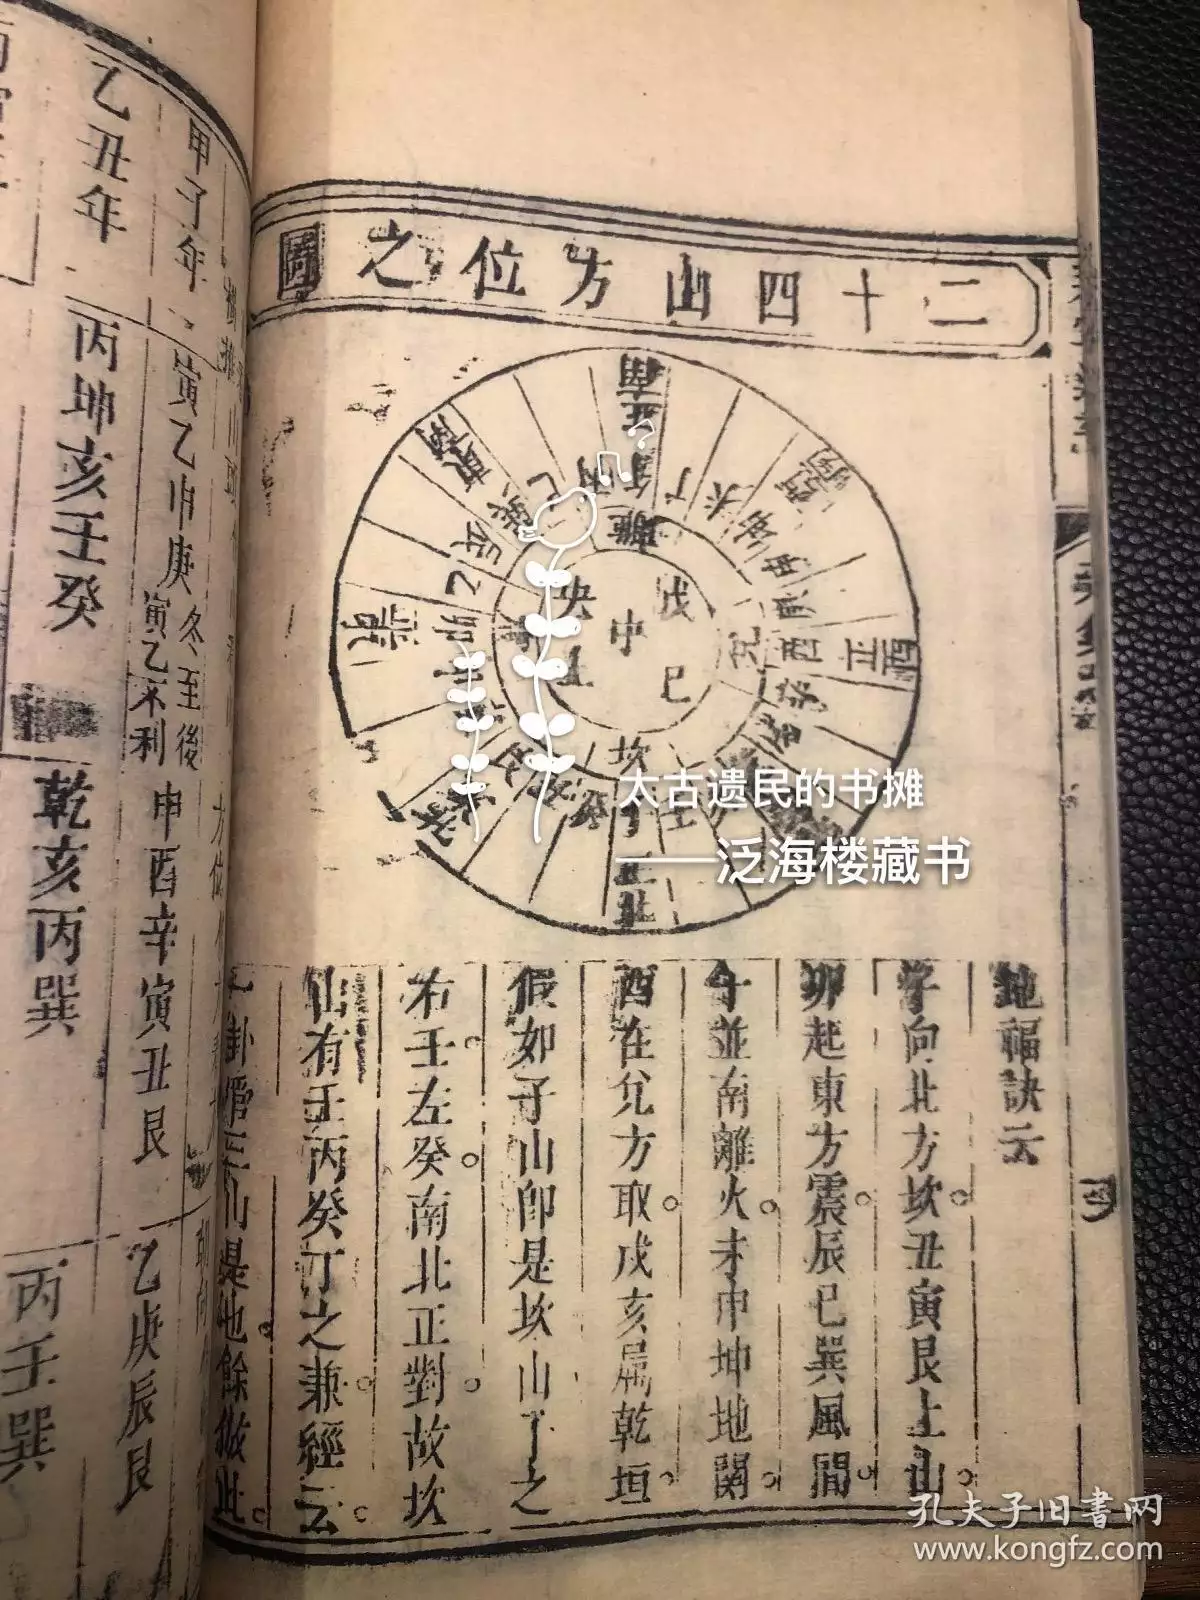 二十四山方位之圖
正南
東南
正東
正酉
正北
離
午
丁
未
坤
申
庚
酉
辛
兌
坎
子
壬
癸
乙
辰
巽
巳
丙
中
央
戊
己
土
訣云
子向北方坎丑寅艮上山
卯起東方震辰巳巽風間
午並南離火未申坤地関
酉在兌方取戌亥屬乾垣
假如子山即是坎山子之
右壬左癸南北正對故坎
山有壬丙癸丁之兼經云
一卦管三山是也餘倣此
甲子年
寅乙申庚
冬至後
寅乙不利
申酉辛寅丑艮
乙庚辰艮
乙丑年
丙坤亥壬癸
乾亥丙巽
丙壬巽
太古遗民的书摊
——泛海楼藏书
孔夫子旧书网
www.kongfz.com